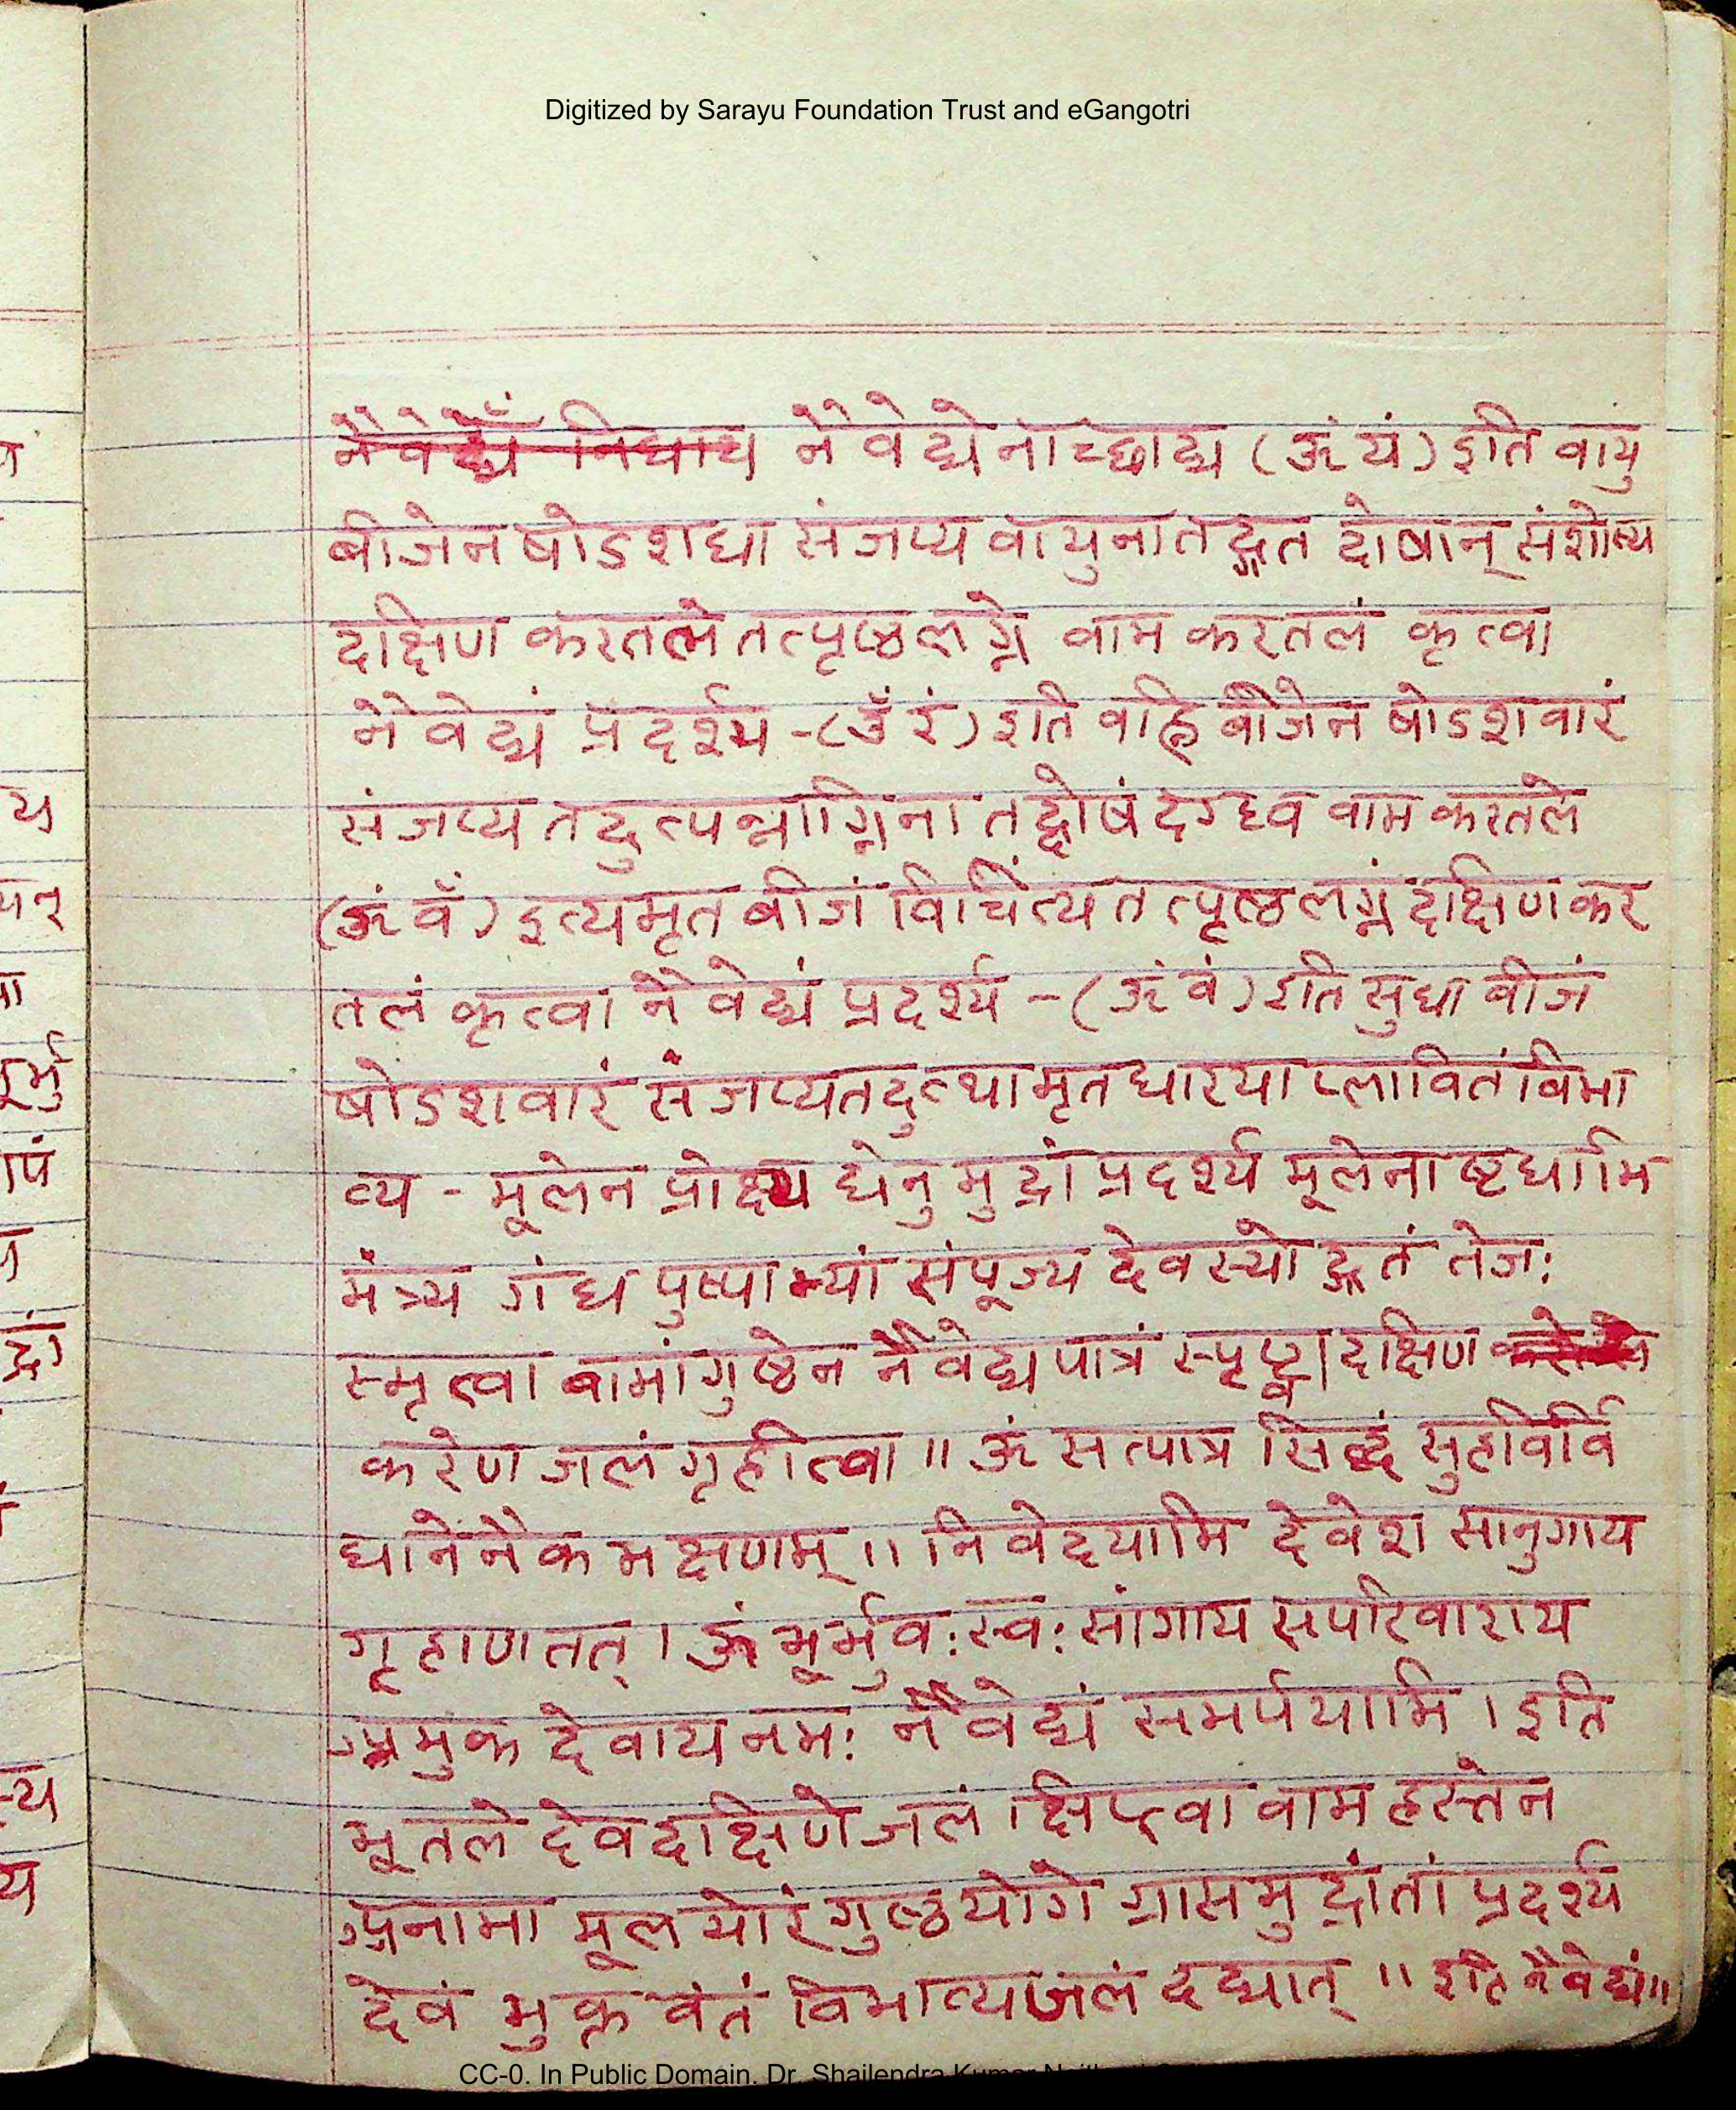 Digitized by Sarayu Foundation Trust and eGangotri
नैवेद्यं निधाय नैवेद्येनाच्छाद्य (ॐ यं) इति वायु
बीजेन षोडशधा संजप्य वायुना तद्गत दोषान् संशोष्य
दक्षिण करतले तत्पृष्ठलग्ने वाम करतलं कृत्वा
नैवेद्यं प्रदर्श्य -(ॐ रं) इति वह्नि बीजेन षोडशवारं
संजप्य तदुत्पन्नाग्निना तद्दोषं दग्ध्व वाम करतले
(ॐ वँ) इत्यमृत बीजं विचिंत्य तत्पृष्ठलग्नं दक्षिण कर
तलं कृत्वा नैवेद्यं प्रदर्श्य - (ॐ वं) इति सुधा बीजं
षोडशवारं संजप्य तदुत्थामृत धारया प्लावितं विभा
व्य - मूलेन प्रोक्ष्य धेनु मुद्रां प्रदर्श्य मूलेनाष्टधाभि
मंत्र्य गंध पुष्पाभ्यां संपूज्य देवस्योद्गतं तेजः
स्मृत्वा वामांगुष्ठेन नैवेद्य पात्रं स्पृष्ट्वा दक्षिण
करेण जलं गृहीत्वा ॥ ॐ सत्पात्र सिद्धं सुहविर्वि
धानेनैक भक्षणम् ॥ निवेदयामि देवेश सानुगाय
गृहाण तत् । ॐ भूर्भुवः स्वः सांगाय सपरिवाराय
अमुक देवाय नमः नैवेद्यं समर्पयामि । इति
भूतले देवदक्षिणे जलं क्षिप्त्वा वाम हस्तेन
अनामा मूलयोरंगुष्ठयोगे ग्रासमुद्रां तां प्रदर्श्य
देवं भुक्त वंतं विभाव्य जलं दद्यात् ॥ इति नैवेद्यं ॥
CC-0. In Public Domain. Dr. Shailendra Kumar